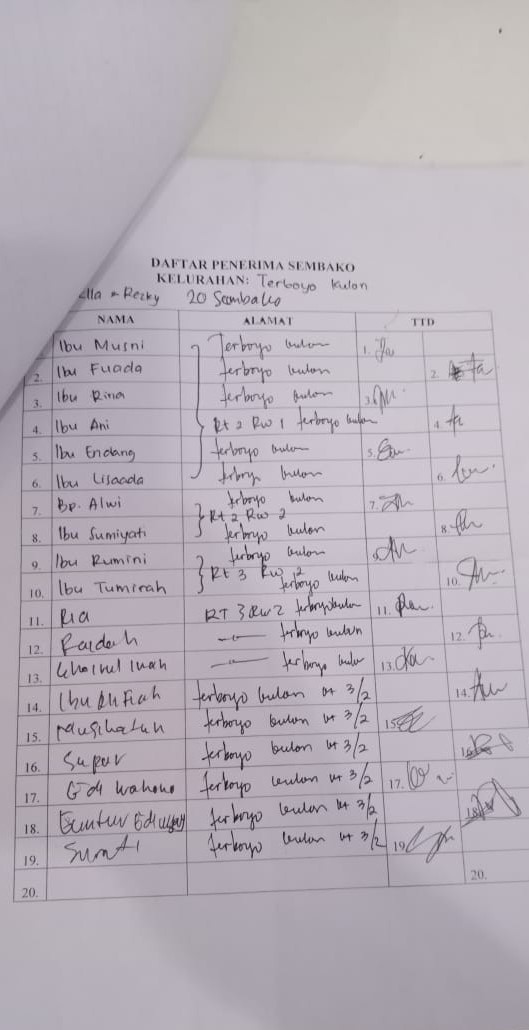 DAFTAR PENERIMA SEMBAKO
KELURAHAN: Terboyo Kulon
Ella & Rezky 20 Sembako
NAMA ALAMAT TTD
Ibu Musni Terboyo kulon 1.
2. Ibu Fuada terboyo kulon 2.
3. Ibu Rina terboyo kulon 3.
4. Ibu Ani Rt 2 Rw 1 terboyo kulon 4.
5. Ibu Endang terboyo kulon 5.
6. Ibu Lisaada terboyo kulon 6.
7. Bp. Alwi terboyo kulon 7.
Rt 2 Rw 2
8. Ibu Sumiyati terboyo kulon 8.
9. Ibu Rumini terboyo kulon
Rt 3 Rw
10. Ibu Tumirah terboyo kulon 10.
11. Ria RT 3 RW 2 terboyo kulon 11.
12. terboyo kulon 12.
13. terboyo kulon 13.
14. Ibu terboyo kulon rt 3/2 14.
15. terboyo kulon rt 3/2 15.
16. terboyo kulon rt 3/2 16.
17. Edi Wahono terboyo kulon rt 3/2 17.
18. Guntur terboyo kulon rt 3/2 18.
19. terboyo kulon rt 3/2 19.
20. 20.